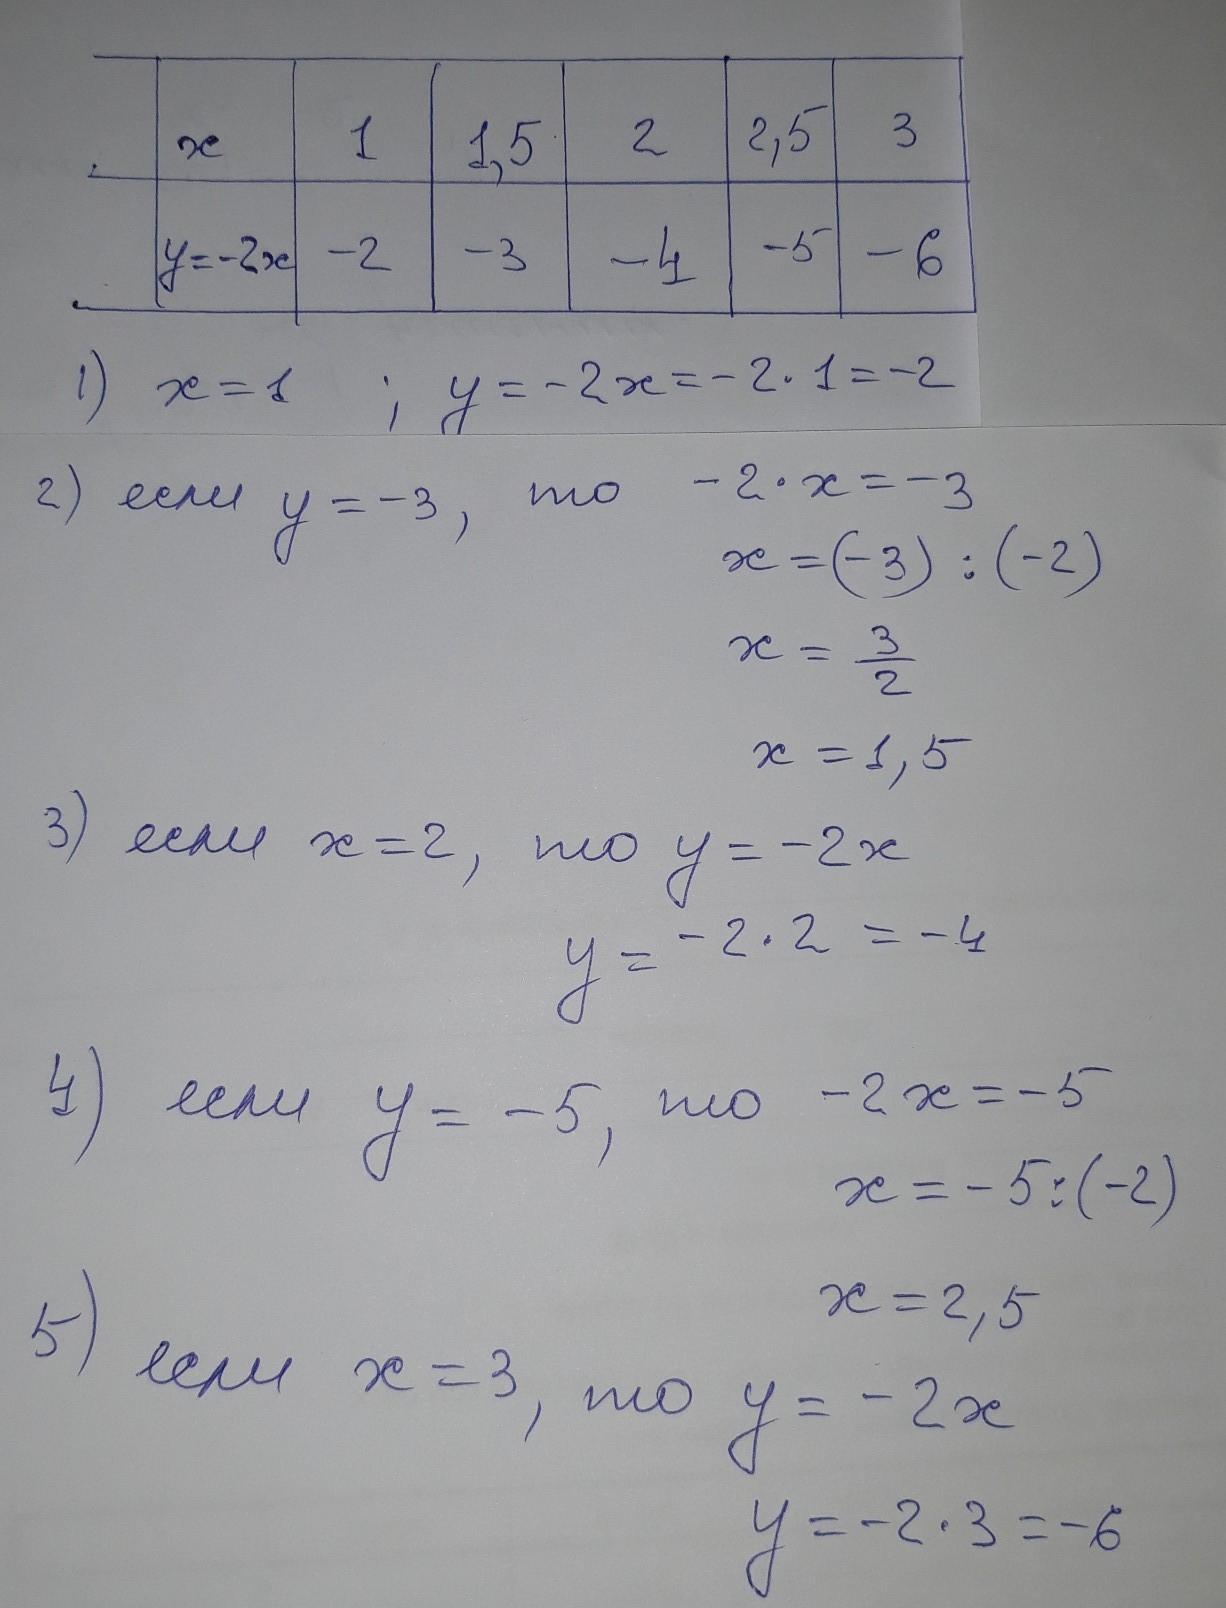 x 1 1,5 2 2,5 3
y=-2x -2 -3 -4 -5 -6
1) x=1 ; y=-2x=-2·1=-2
2) если y=-3, то -2·x=-3
x=(-3):(-2)
x=3/2
x=1,5
3) если x=2, то y=-2x
y=-2·2=-4
4) если y=-5, то -2x=-5
x=-5:(-2)
x=2,5
5) если x=3, то y=-2x
y=-2·3=-6